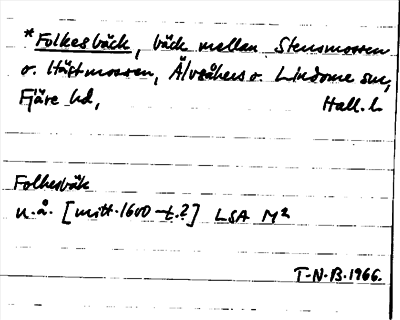 *Folkesbäck, bäck mellan Stensmossen
o. Hästmossen, Älvsåkers o. Lindome snr,
Fjäre hd, Hall. l.
Folkesbäk
u.å. [mitt. 1600-t.?] LSA M²
T.N.B. 1966.